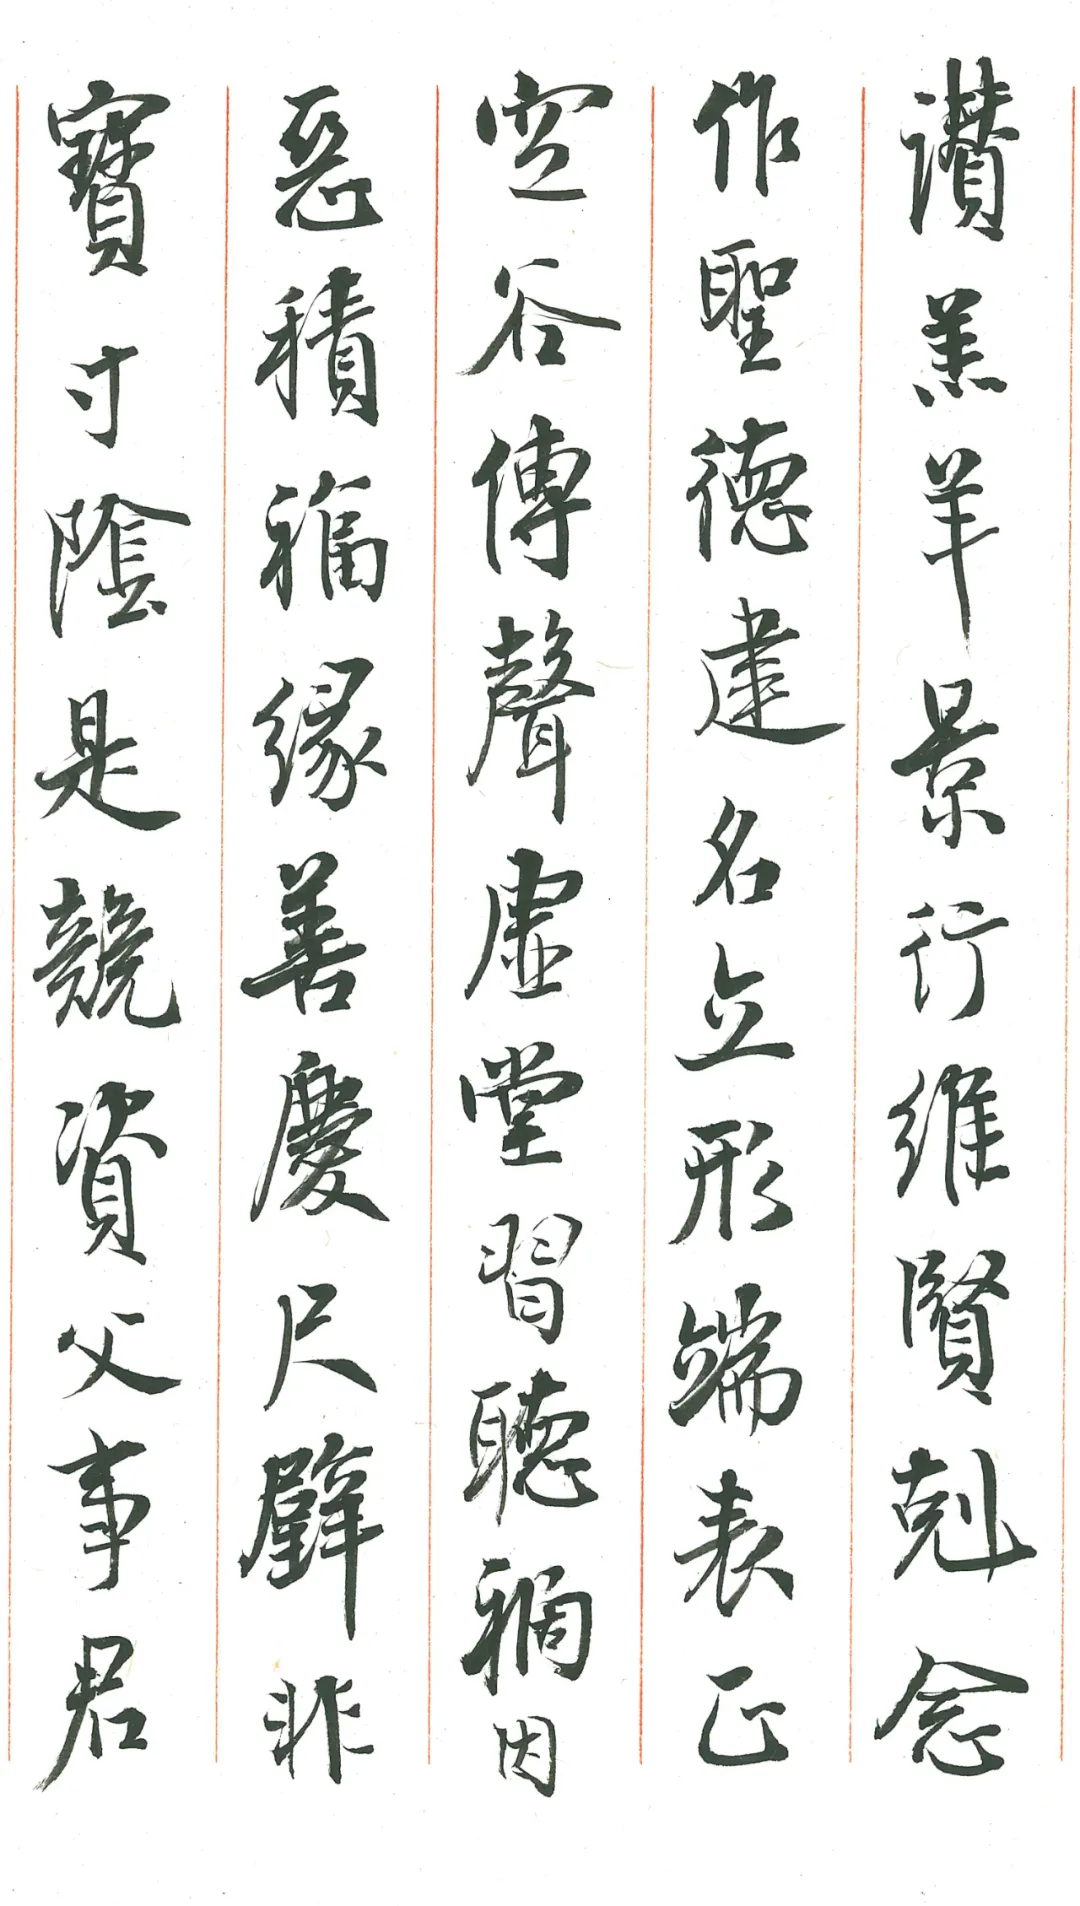 讃羔羊景行維賢剋念
作聖德建名立形端表正
空谷傳聲虛堂習聽禍因
惡積福緣善慶尺璧非
寶寸陰是競資父事君